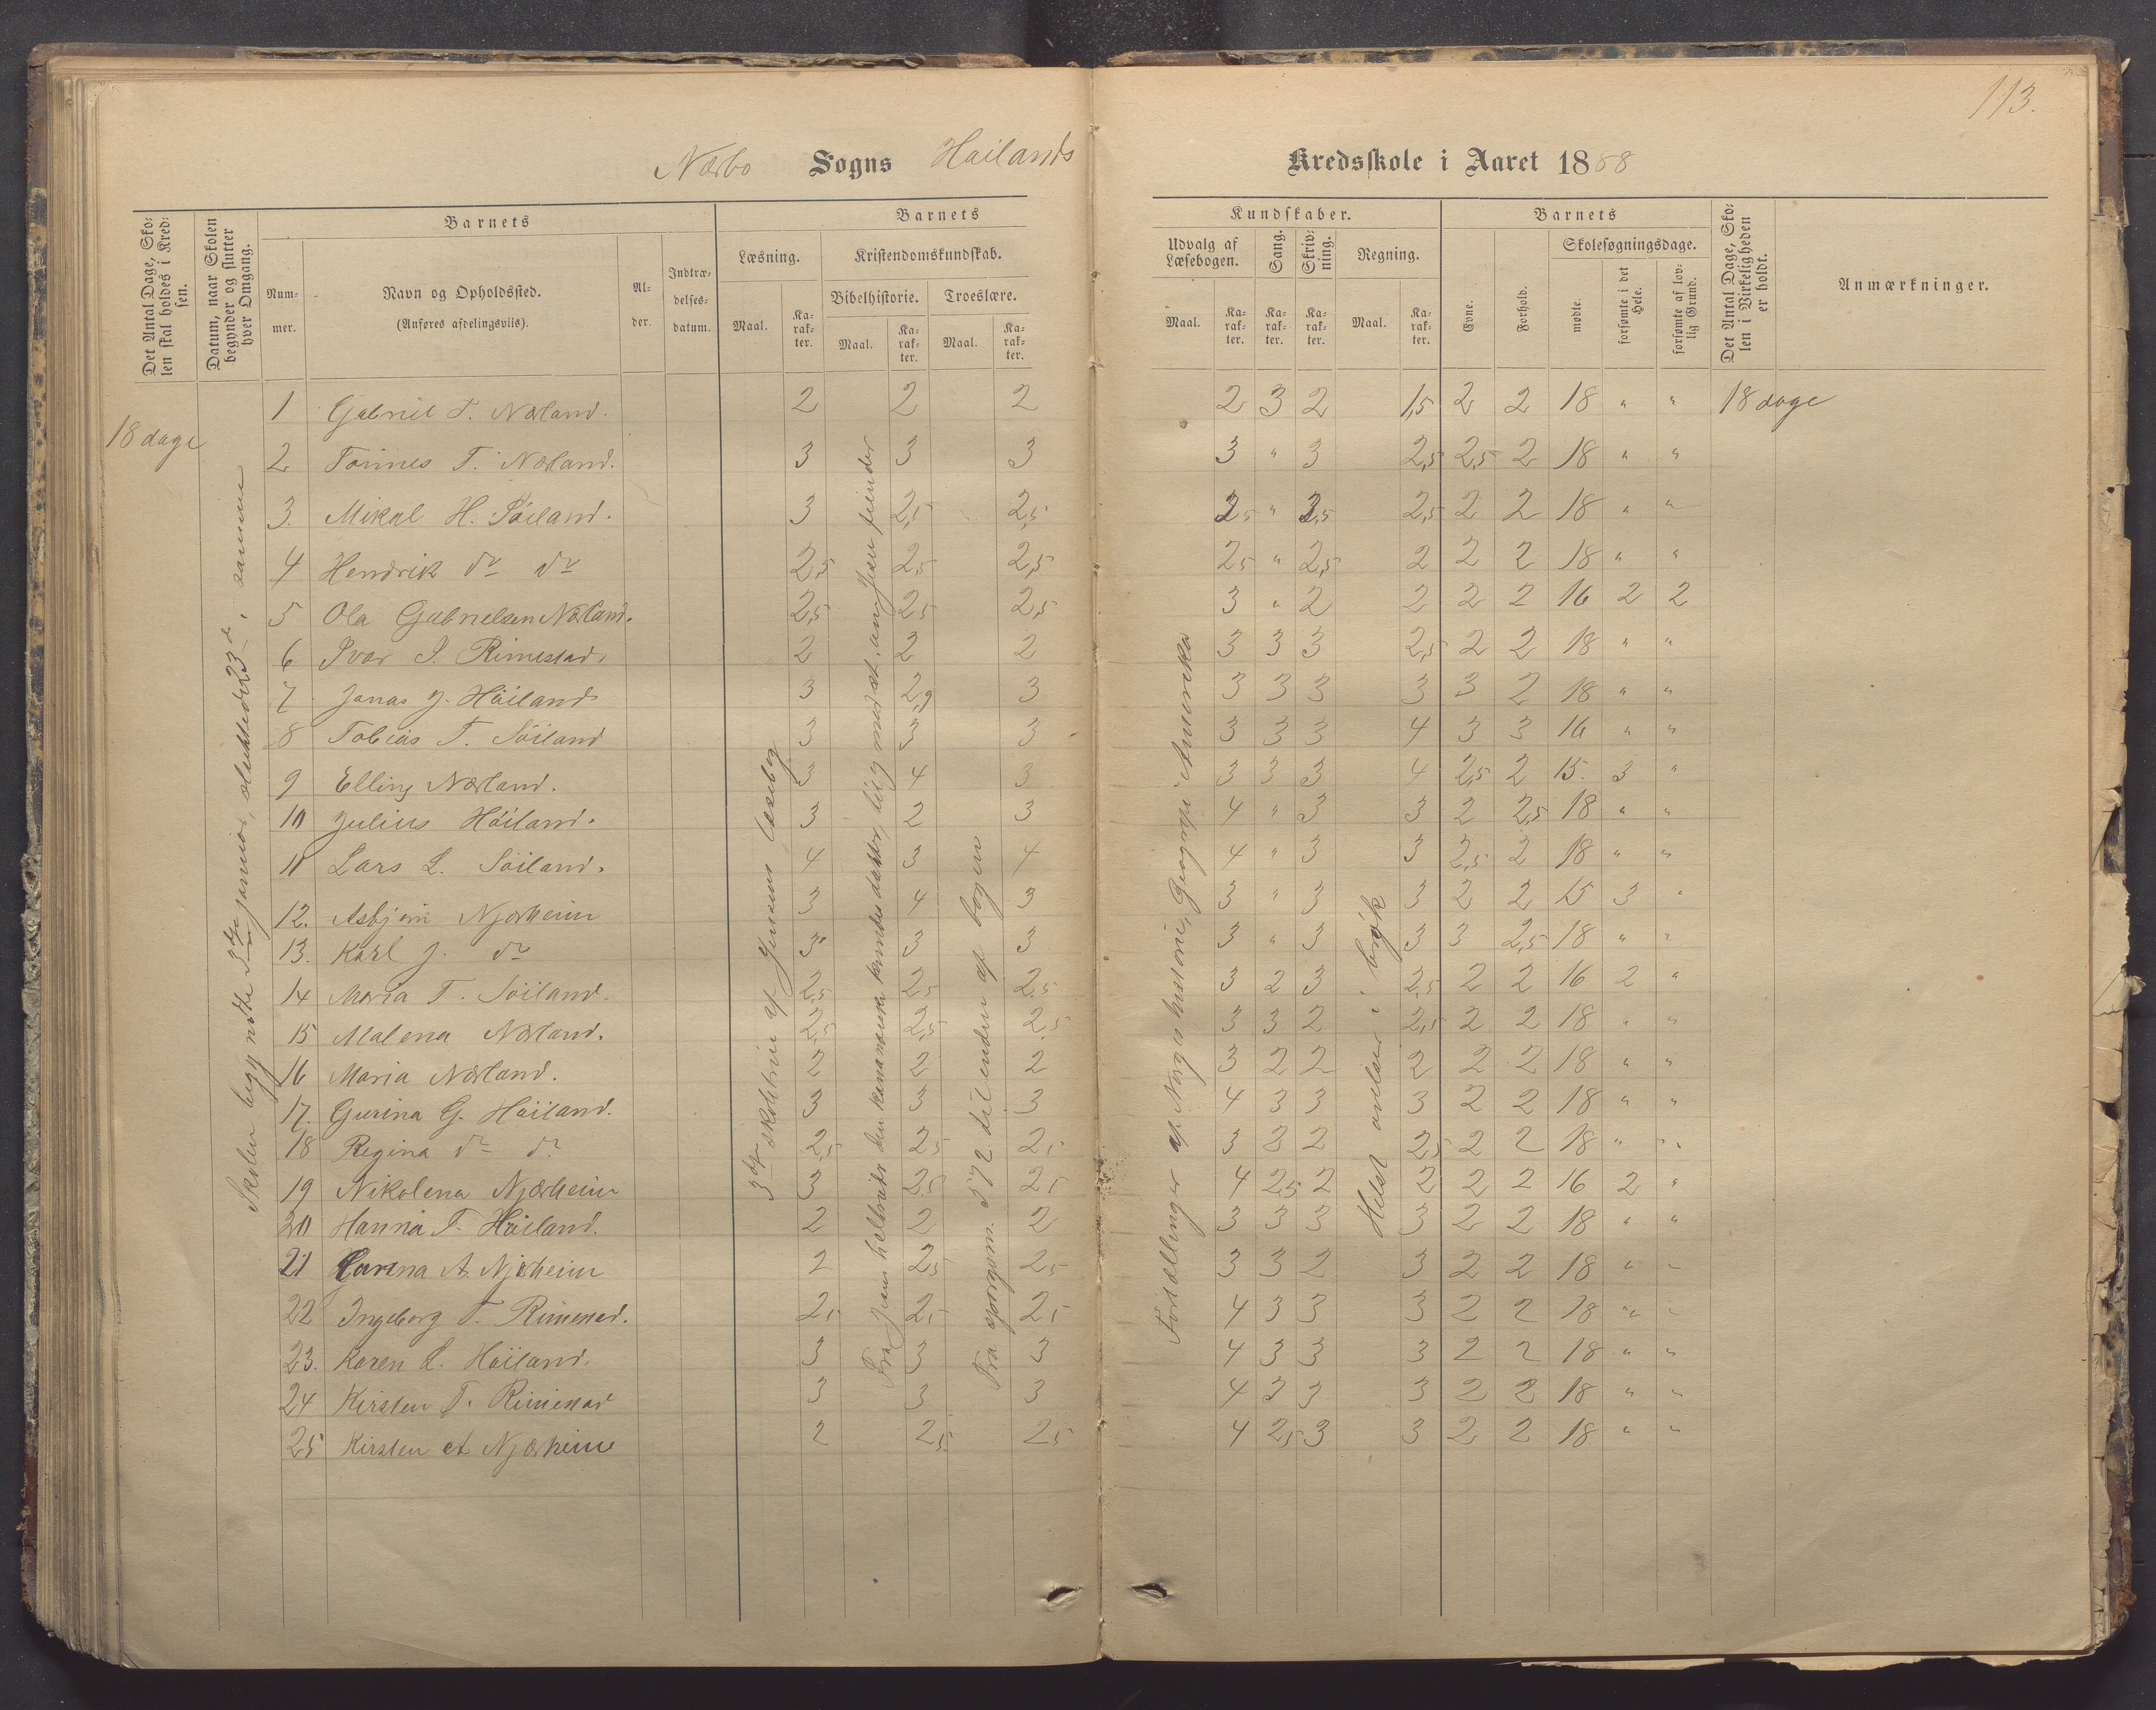 113.
Nærbo Sogns Høilands Kredsskole i Aaret 1888
Det Antal Dage, Skolen skal holdes i Kredsen.
Datum, naar Skolen begynder og slutter hver Omgang.
Barnets
Nummer.
Navn og Opholdssted.
(Anføres afdelingsviis).
Alder.
Indtrædelsesdatum.
Barnets
Læsning.
Maal.
Karakter.
Kristendomskundskab.
Bibelhistorie.
Maal.
Karakter.
Troeslære.
Maal.
Karakter.
Kundskaber.
Udvalg af Læsebogen.
Maal.
Karakter.
Sang.
Karakter.
Skrivning.
Karakter.
Regning.
Maal.
Karakter.
Barnets
Evne.
Forhold.
Skolesøgningsdage.
mødte.
forsømte i det Hele.
forsømte af lovlig Grund.
Det Antal Dage, Skolen i Virkeligheden er holdt.
Anmærkninger.
18 dage
Skolen begyndte 3die januar, sluttede 23d samme
3die skoletrin af Jensens læsebog
Fra Jesus helbreder den kananæiske kvindes datter, til og med at, Jesu fiender
Fra spørgsm. 572 til enden af bogen
Fortællinger af Norges historie, Geografi: Amerika
Helst øvelser i brøk
1 Gabriel T. Nærland. 2 2 2 2 3 2 1,5 2 2 18 " " 18 dage
2 Tønnes T. Nærland. 3 3 3 3 " 3 2,5 2,5 2 18 " "
3. Mikal H. Søiland. 3 2,5 2,5 2,5 " 2,5 2,5 2 2 18 " "
4 Hendrik do do 2,5 2,5 2,5 2,5 " 2,5 2 2 2 18 " "
5 Ola Gabrielsen Nærland. 2,5 2,5 2,5 3 " 2 2 2 2 16 2 2
6 Ivar I. Rimestad. 2 2 2 3 3 3 2,5 2 2 18 " "
7 Jonas J. Høiland 3 2,9 3 3 3 3 3 3 2 18 " "
8 Tobias T. Søiland 3 3 3 3 3 3 4 3 3 16 " "
9 Elling Nærland. 3 4 3 3 3 3 4 2,5 2 15. 3 "
10 Julius Høiland. 3 2 3 4 " 3 3 2 2,5 18 " "
11 Lars L. Søiland. 4 3 4 4 " 3 3 2,5 2 18 " "
12. Asbjørn Njærheim 3 4 3 3 " 3 3 2 2 15 3 "
13. Karl J. do 3 3 3 3 " 3 3 3 2,5 18 " "
14 Maria T. Søiland. 2,5 2,5 2,5 3 2 3 2,5 2 2 16 2 "
15 Malena Nærland. 2,5 2,5 2,5 3 3 2 2,5 2 2 18 " "
16 Maria Nærland. 2 2 2 3 2 2 2 2 2 18 " "
17. Gurina G. Høiland. 3 3 3 4 3 3 3 2 2 18 " "
18 Regina do do 2,5 2,5 2,5 3 3 2 2,5 2 2 18 " "
19 Nikolena Njærheim 3 2,5 2,5 4 2,5 2 2 2 2 16 2 "
20 Hanna T. Høiland. 2 2 2 3 3 3 3 2 2 18 " "
21 Garina A. Njærheim 2 2,5 2,5 3 3 2 3 2 2 18 " "
22 Ingeborg T. Rimestad. 2,5 2,5 2,5 4 3 3 3 2 2 18 " "
23. Karen L. Høiland. 3 3 3 4 3 3 3 2 2 18 " "
24 Kirsten T. Rimestad 3 3 3 4 3 3 3 2 2 18 " "
25 Kirsten A Njærheim 2 2,5 2,5 4 2,5 3 3 2 2 18 " "